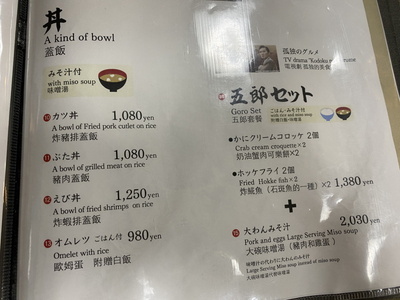 丼
A kind of bowl
蓋飯
みそ汁付
with miso soup
味噌湯
⑩ カツ丼 1,080yen
A bowl of Fried pork cutlet on rice
炸豬排蓋飯
⑪ ぶた丼 1,080yen
A bowl of grilled meat on rice
豬肉蓋飯
⑫ えび丼 1,250yen
A bowl of fried shrimps on rice
炸蝦排蓋飯
⑬ オムレツ ごはん付 980yen
Omelet with rice
歐姆蛋 附贈白飯
孤独のグルメ
TV drama "Kodoku
電視劇 孤独的美食
五郎セット
Goro Set
五郎套餐
ごはん・みそ汁付
with rice and miso soup
附贈白飯・味噌湯
●かにクリームコロッケ 2個
Crab cream croquette×2
奶油蟹肉可樂餅×2
●ホッケフライ 2個
Fried Hokke fish×2
炸鯱魚（石斑魚的一種）×2 1,380yen
+
⑮ 大わんみそ汁 2,030yen
Pork and eggs Large Serving Miso soup
大碗味噌湯（豬肉和雞蛋）
味噌汁の代わりに大わんのみそ汁
Large Serving Miso soup instead of miso soup